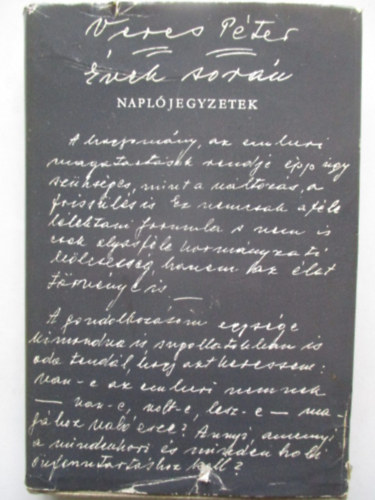 Veres Péter
Évek során
NAPLÓJEGYZETEK
A hagyomány, az emberi
magatartások rendje épp úgy
szükséges, mint a változás, a
frissülés is. Ez nemcsak aféle
lélektani formula s nem is
csak olyasféle kormányzati
bölcsesség, hanem az élet
törvénye is —
A gondolkozásom egysége
kimondva is sugallatokban is
oda tendál, hogy azt keressem:
van-e az emberi nemnek
— van-e, volt-e, lesz-e — ma-
gához való esze? Annyi, amennyi
a mindenkori és mindenholi
önfenntartáshoz kell?